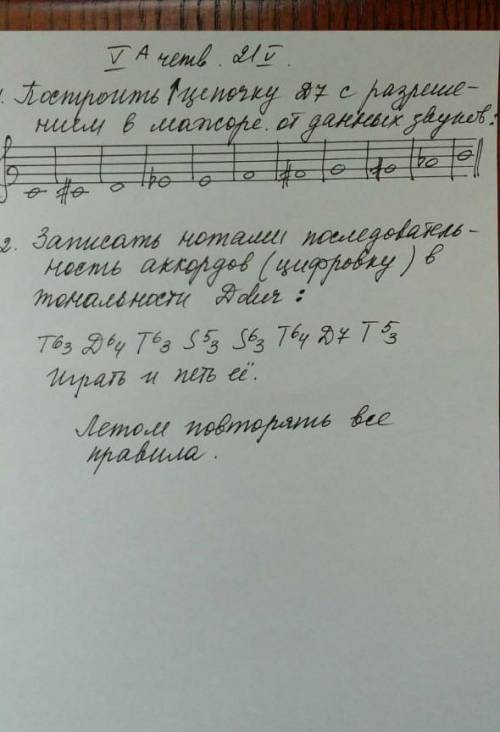 V А четв. 21 V.
1. Построить ↑ цепочку Д7 с разреше-
нием в мажоре от данных звуков:
2. Записать нотами последователь-
ность аккордов (цифровку) в
тональности Ddur:
Т63 Д64 Т63 S53 S63 Т64 Д7 Т53
Играть и петь её.
Летом повторять все
правила.